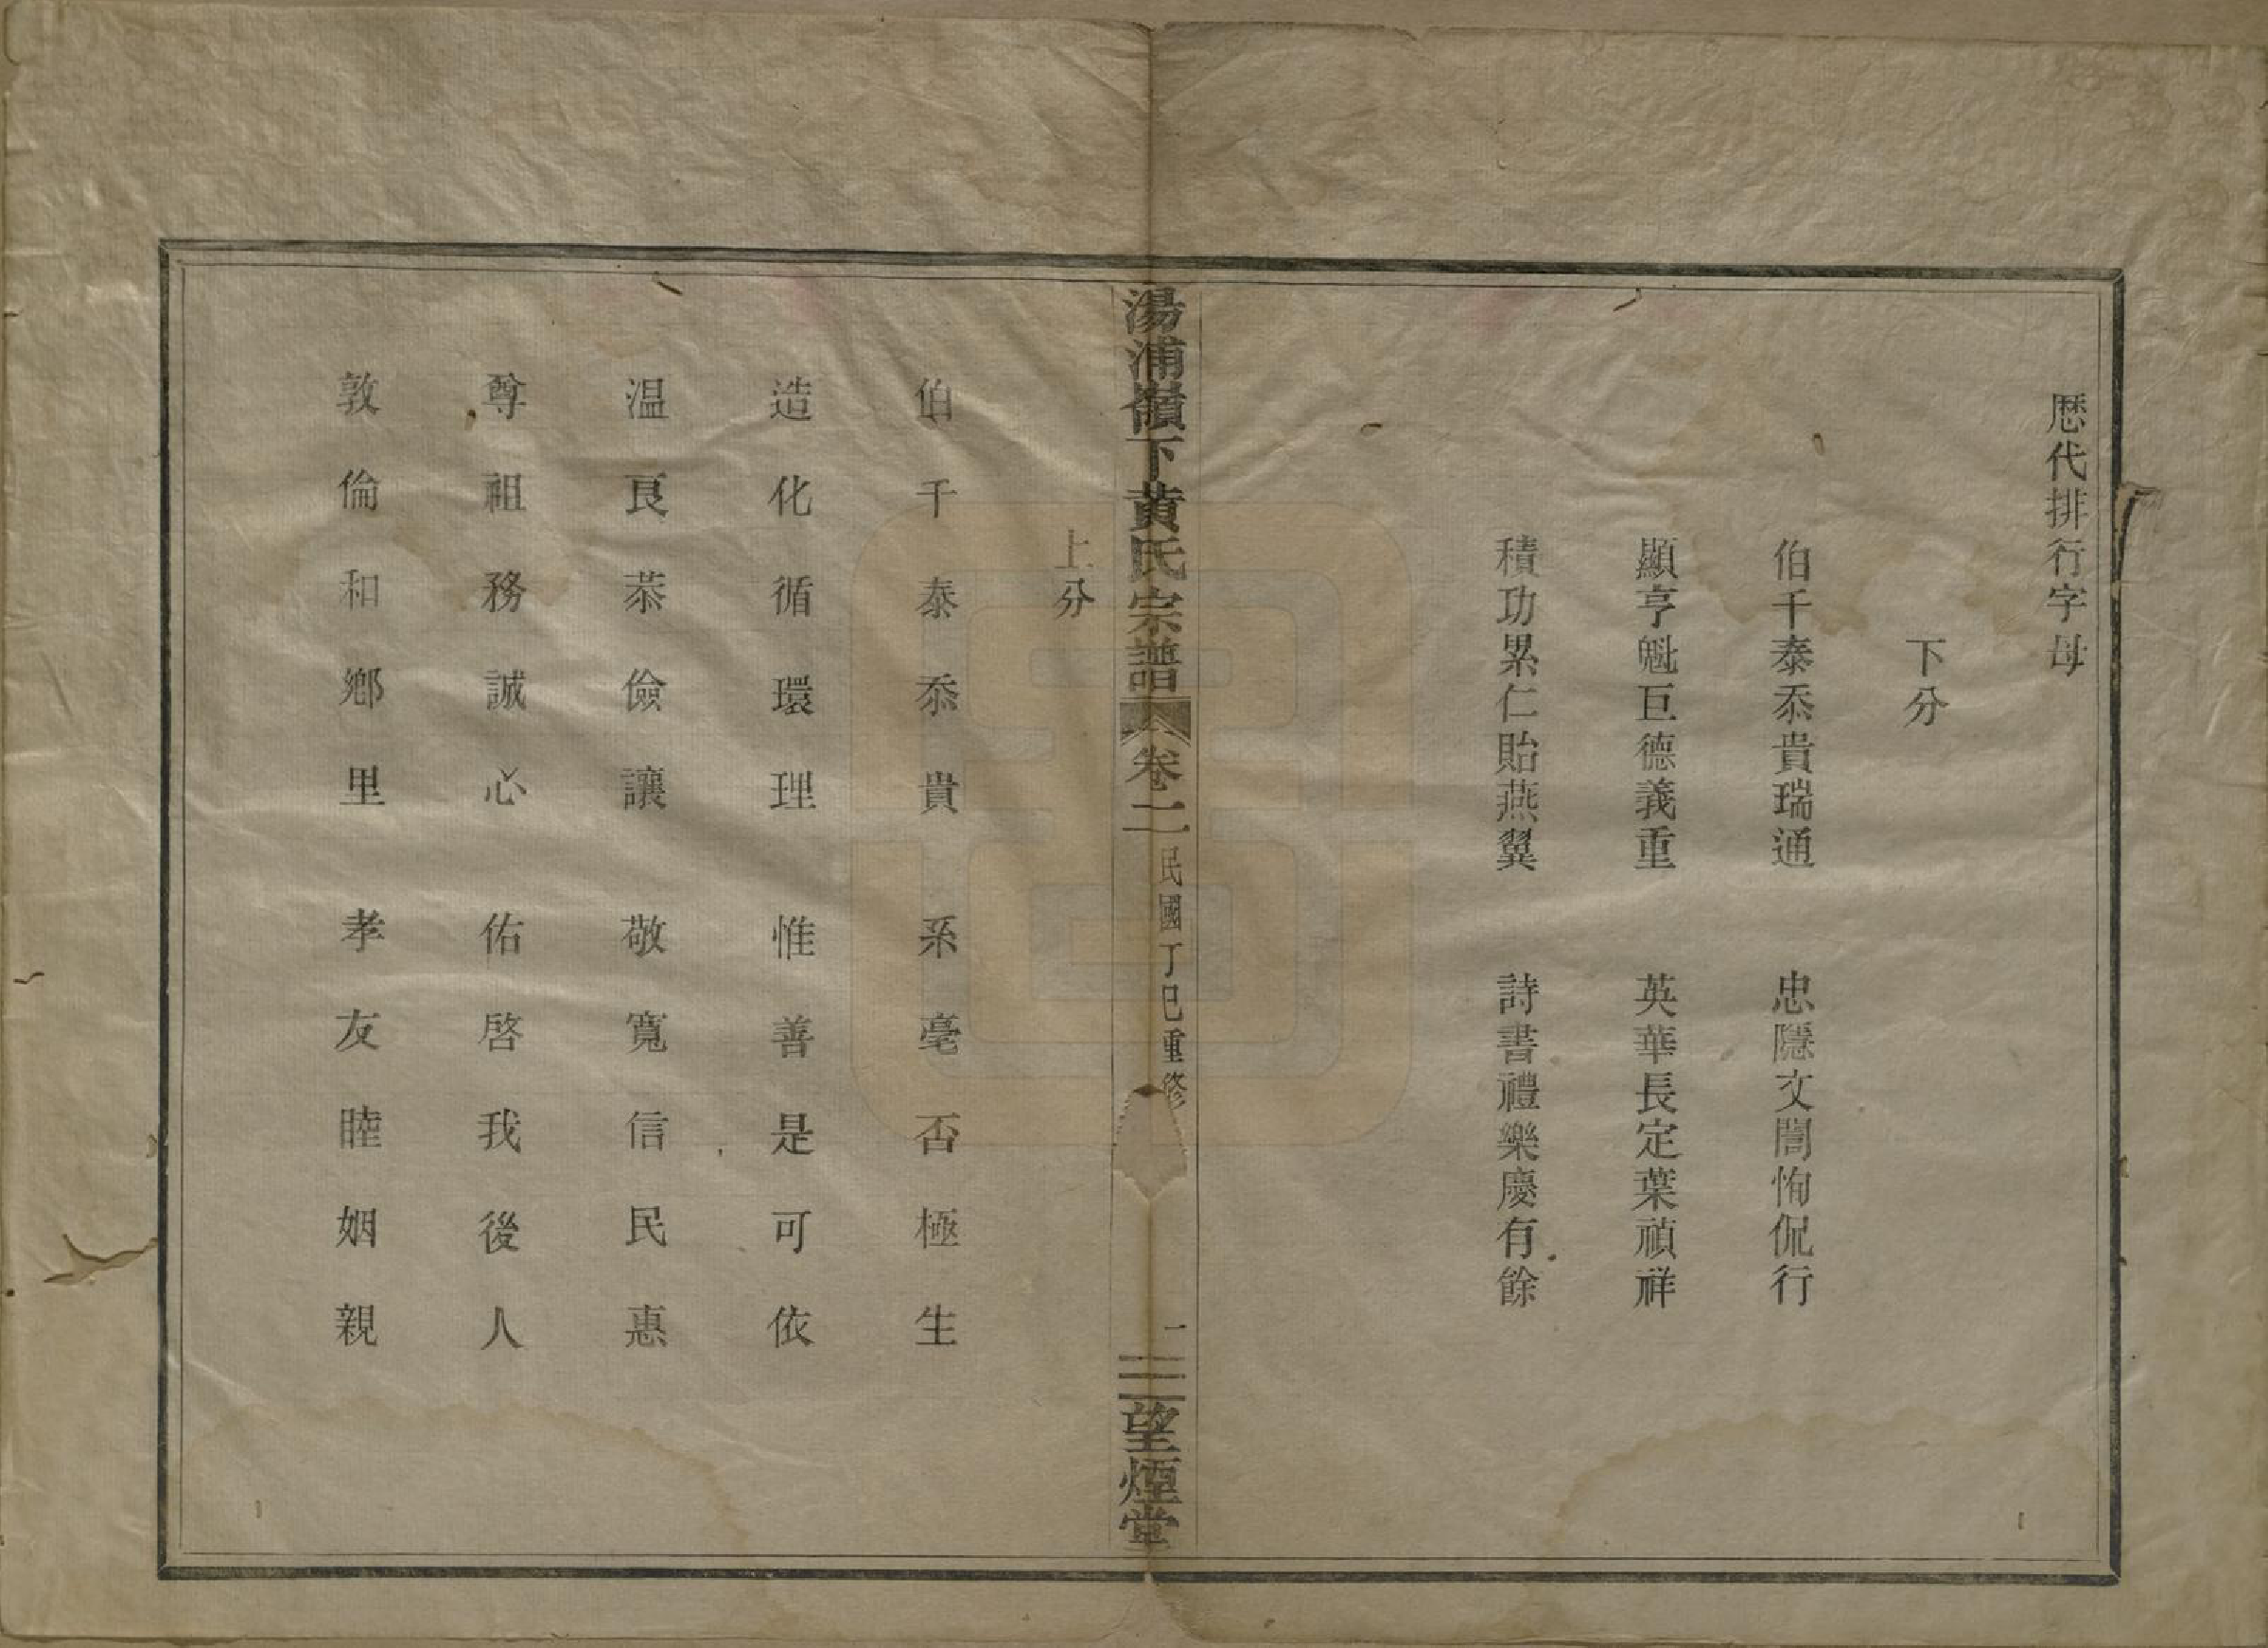 歷代排行字母
下分
伯千泰忝貴瑞通　忠隱文誾恂侃行
顯亨魁巨德義重　英華長定葉禎祥
積功累仁貽燕翼　詩書禮樂慶有餘
湯浦嶺下黃氏宗譜　卷二　民國丁巳重修　一　三望煙堂
上分
伯千泰忝貴　系毫否極生
造化循環理　惟善是可依
温良恭儉讓　敬寬信民惠
尊祖務誠心　佑啓我後人
敦倫和鄉里　孝友睦姻親